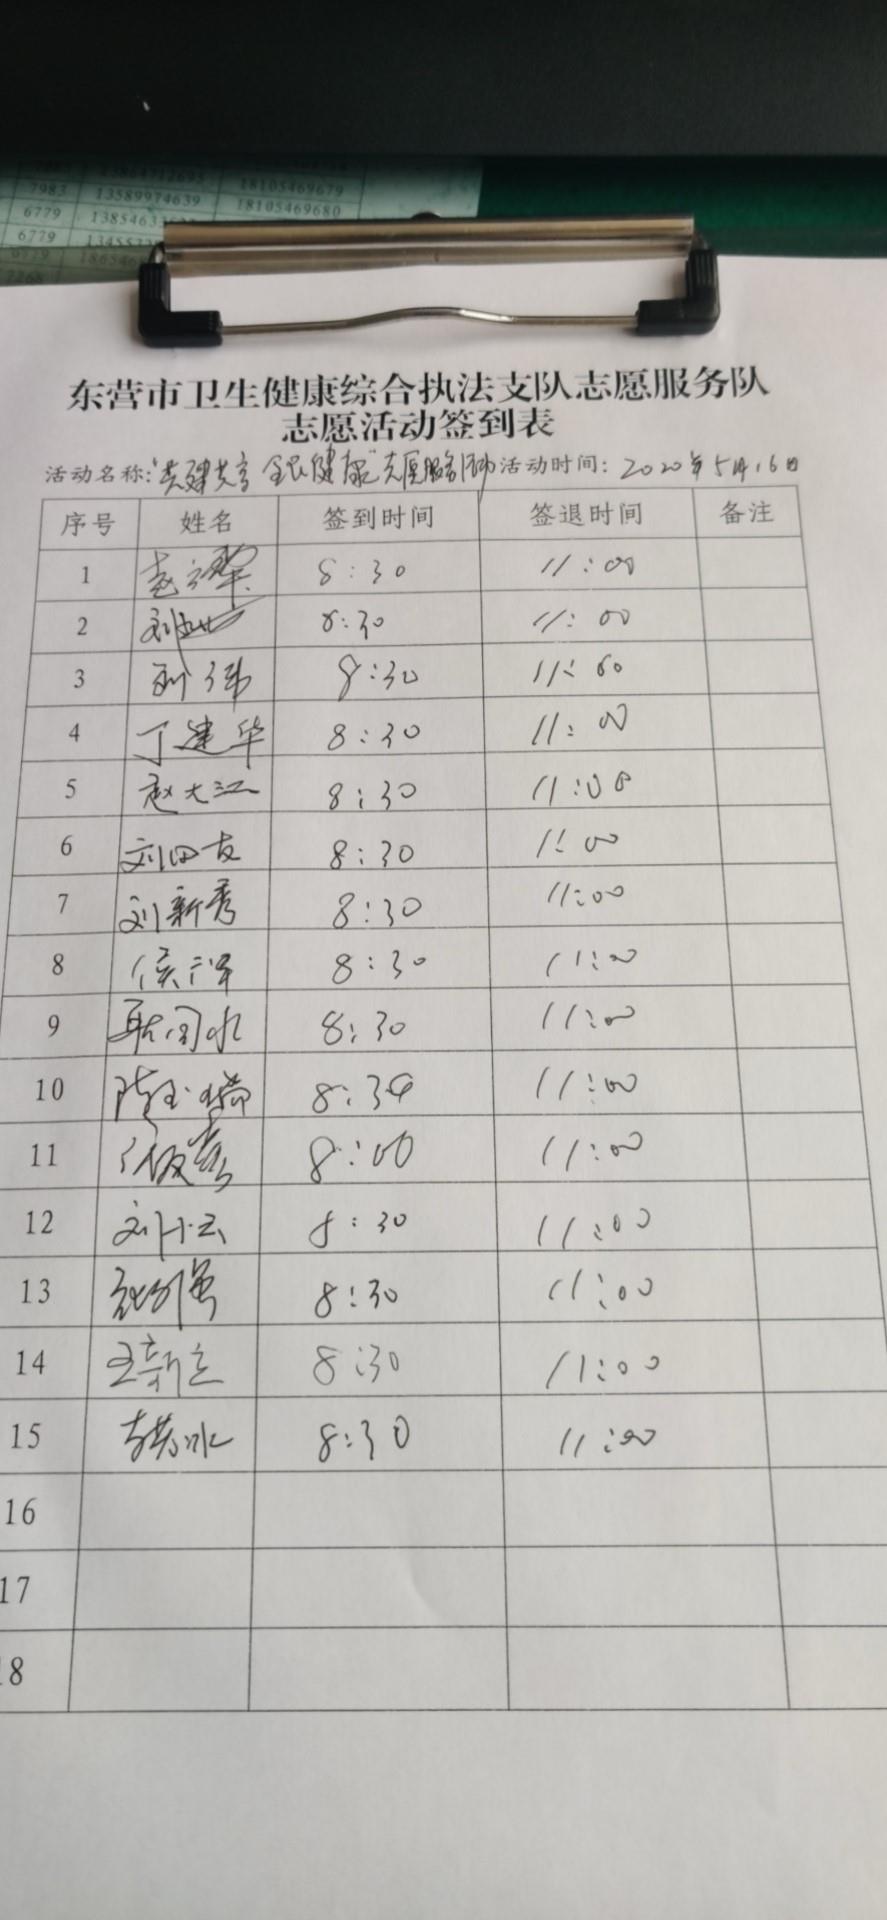 7983 13589974639 18105469679
6779 18105469680
6779
东营市卫生健康综合执法支队志愿服务队
志愿活动签到表
活动名称:"共建共享 全民健康"志愿服务活动 活动时间: 2020年5月16日
序号 姓名 签到时间 签退时间 备注
1 8:30 11:00
2 8:30 11:00
3 刘伟 8:30 11:00
4 丁建华 8:30 11:00
5 赵大江 8:30 11:00
6 刘田友 8:30 11:00
7 刘新秀 8:30 11:00
8 8:30 11:00
9 8:30 11:00
10 8:30 11:00
11 8:00 11:00
12 8:30 11:00
13 8:30 11:00
14 王新立 8:30 11:00
15 8:30 11:00
16
17
18